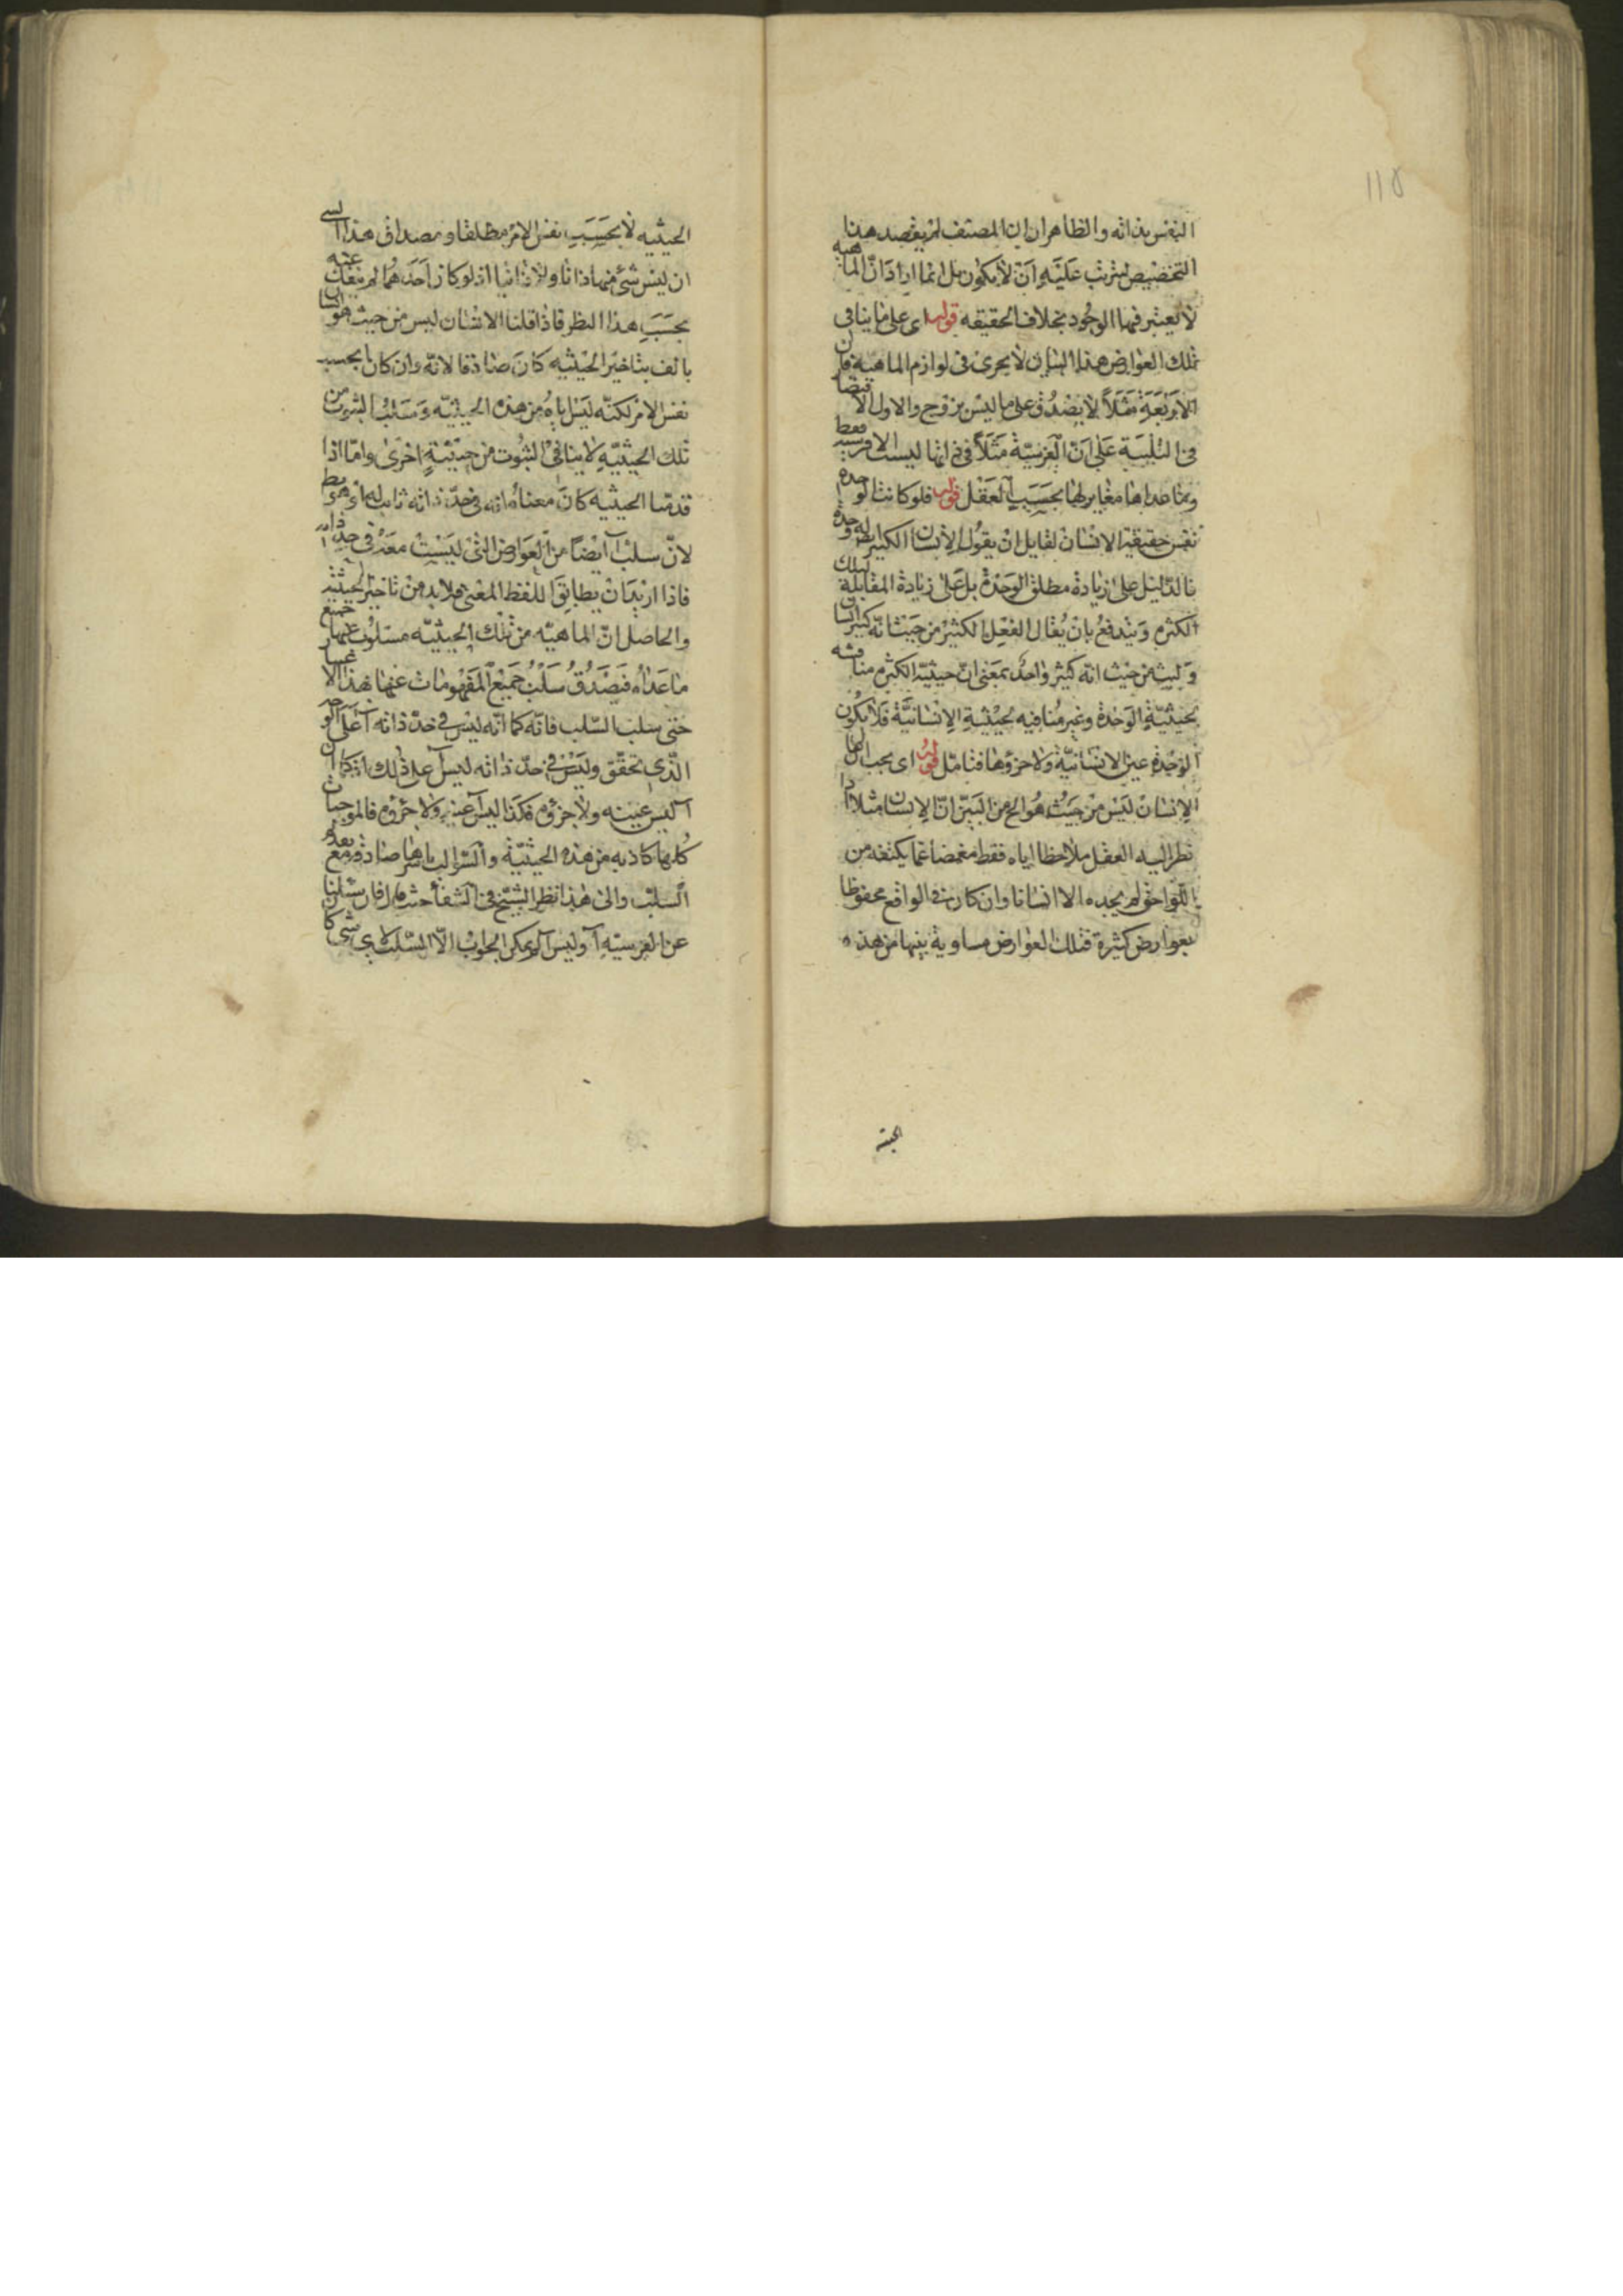 ١١٥
النفس بذاته والظاهر ان المصنف لم يقصد هذا
التخصيص ليترتب عليه ان لا يكون بل انما اراد ان الماهية
لا يعتبر فيها الوجود بخلاف الحقيقه قوله اى على ما ينافى
تلك العوارض هذا البيان لا يجرى فى لوازم الماهية فان
الاربعة مثلاً لا يصدق على ما ليس بزوج والاول الاقتصار
فى التلبية على ان الفرسيّة مثلاً فى انها ليست الا فرسية فقط
وما عداها مغاير لها بحسب العقل قوله فلو كانت الوحدة
نفس حقيقة الانسان لقايل ان يقول الانسان الكثير له وحدة
فالدليل على زيادة مطلق الوحدة بل على زيادة المقابلة لتلك
الكثرة ويندفع بان يقال الفعل الكثير من حيث انه كثير انسان
وليس من حيث انه كثير واحد بمعنى ان حيثية الكثرة منافية
لحيثية الوحدة وغير منافيه لحيثية الانسانية فلا يكون
الوحدة عين الانسانية ولا جزؤها فتامل قوله اى يجب
الانسان ليس من حيث هو الخ من البين ان الانسان مثلا اذا
نظر اليه العقل ملاحظا اياه فقط مغمضا عما يكتنفه من
اللواحق لم يجده الا انسانا وان كان فى الواقع محفوظا
بعوارض كثيرة فتلك العوارض مساوية بينها من هذه
الحيثية
الحيثيه لا بحسب نفس الامر مطلقا ومصداق هذا السلب
ان ليس شئ منها ذاتا ولا ذاتيا اذ لو كان احدهما لم ينفك عنه
بحسب هذا النظر فاذا قلنا الانسان ليس من حيث هو انسان
بالف بتاخير الحيثيه كان صادقا لانه وان كان بحسب
نفس الامر لكنه ليس اياه من هذه الحيثيه وسلب الثبوت من
تلك الحيثيه لا ينافى الثبوت من حيثية اخرى واما اذا
قدمنا الحيثيه كان معناه انه فى حدّ ذاته
لان سلب آ ايضا من العوارض التى ليست معه فى حد ذاته
فاذا اريد ان يطابق اللفظ المعنى فلا بد من تاخير الحيثية
والحاصل ان الماهيه من تلك الحيثيه مسلوب عنها جميع
ما عداه فيصدق سلب جميع المفهومات عنها بهذا الاعتبار
حتى سلب السلب فانه كما انه ليس فى حدّ ذاته آ على الوجه
الذى تحقق وليس فى حدّ ذاته ليس آ على ذلك اذ كما ان
آ ليس عينه ولا جزؤه فكذا ليس آ عينه ولا جزؤه فالموجبات
كلها كاذبه من هذه الحيثية والسوالب باسرها صادقه مع
السلب والى هذا نظر الشيخ فى الشفاء حيث قال فان سئلنا
عن الفرسية آ وليس آ لم يكن الجواب الا السلب لاى شى كان